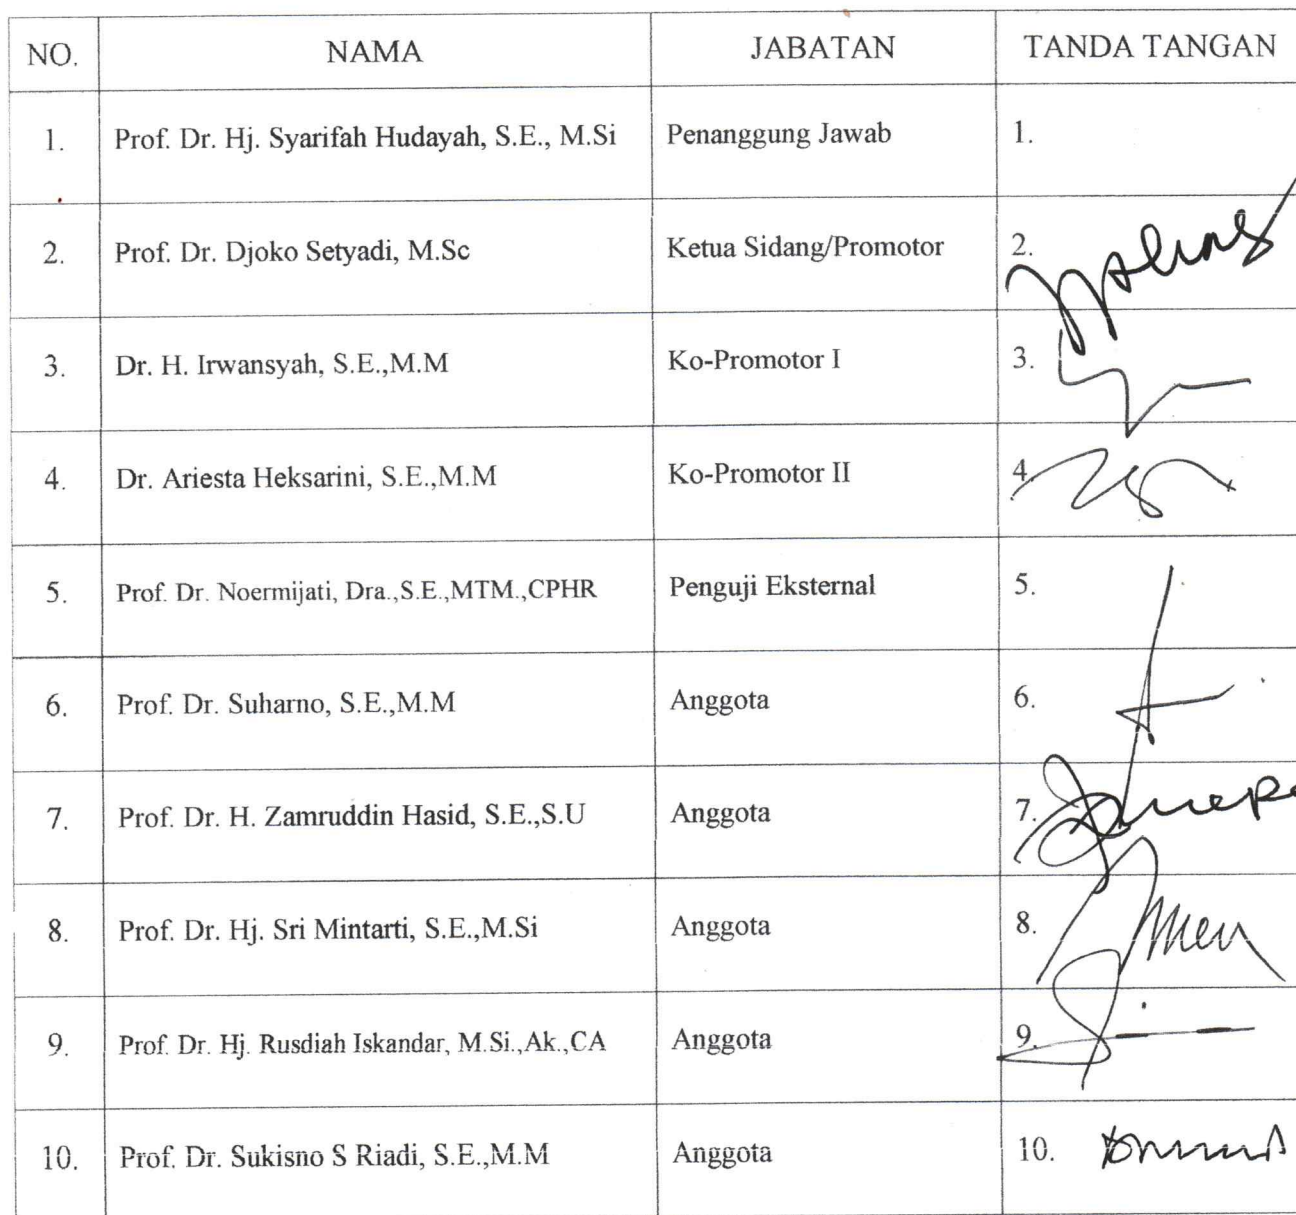 NO. NAMA JABATAN TANDA TANGAN
1. Prof. Dr. Hj. Syarifah Hudayah, S.E., M.Si Penanggung Jawab 1.
2. Prof. Dr. Djoko Setyadi, M.Sc Ketua Sidang/Promotor 2.
3. Dr. H. Irwansyah, S.E.,M.M Ko-Promotor I 3.
4. Dr. Ariesta Heksarini, S.E.,M.M Ko-Promotor II 4.
5. Prof. Dr. Noermijati, Dra.,S.E.,MTM.,CPHR Penguji Eksternal 5.
6. Prof. Dr. Suharno, S.E.,M.M Anggota 6.
7. Prof. Dr. H. Zamruddin Hasid, S.E.,S.U Anggota 7.
8. Prof. Dr. Hj. Sri Mintarti, S.E.,M.Si Anggota 8.
9. Prof. Dr. Hj. Rusdiah Iskandar, M.Si.,Ak.,CA Anggota 9.
10. Prof. Dr. Sukisno S Riadi, S.E.,M.M Anggota 10.